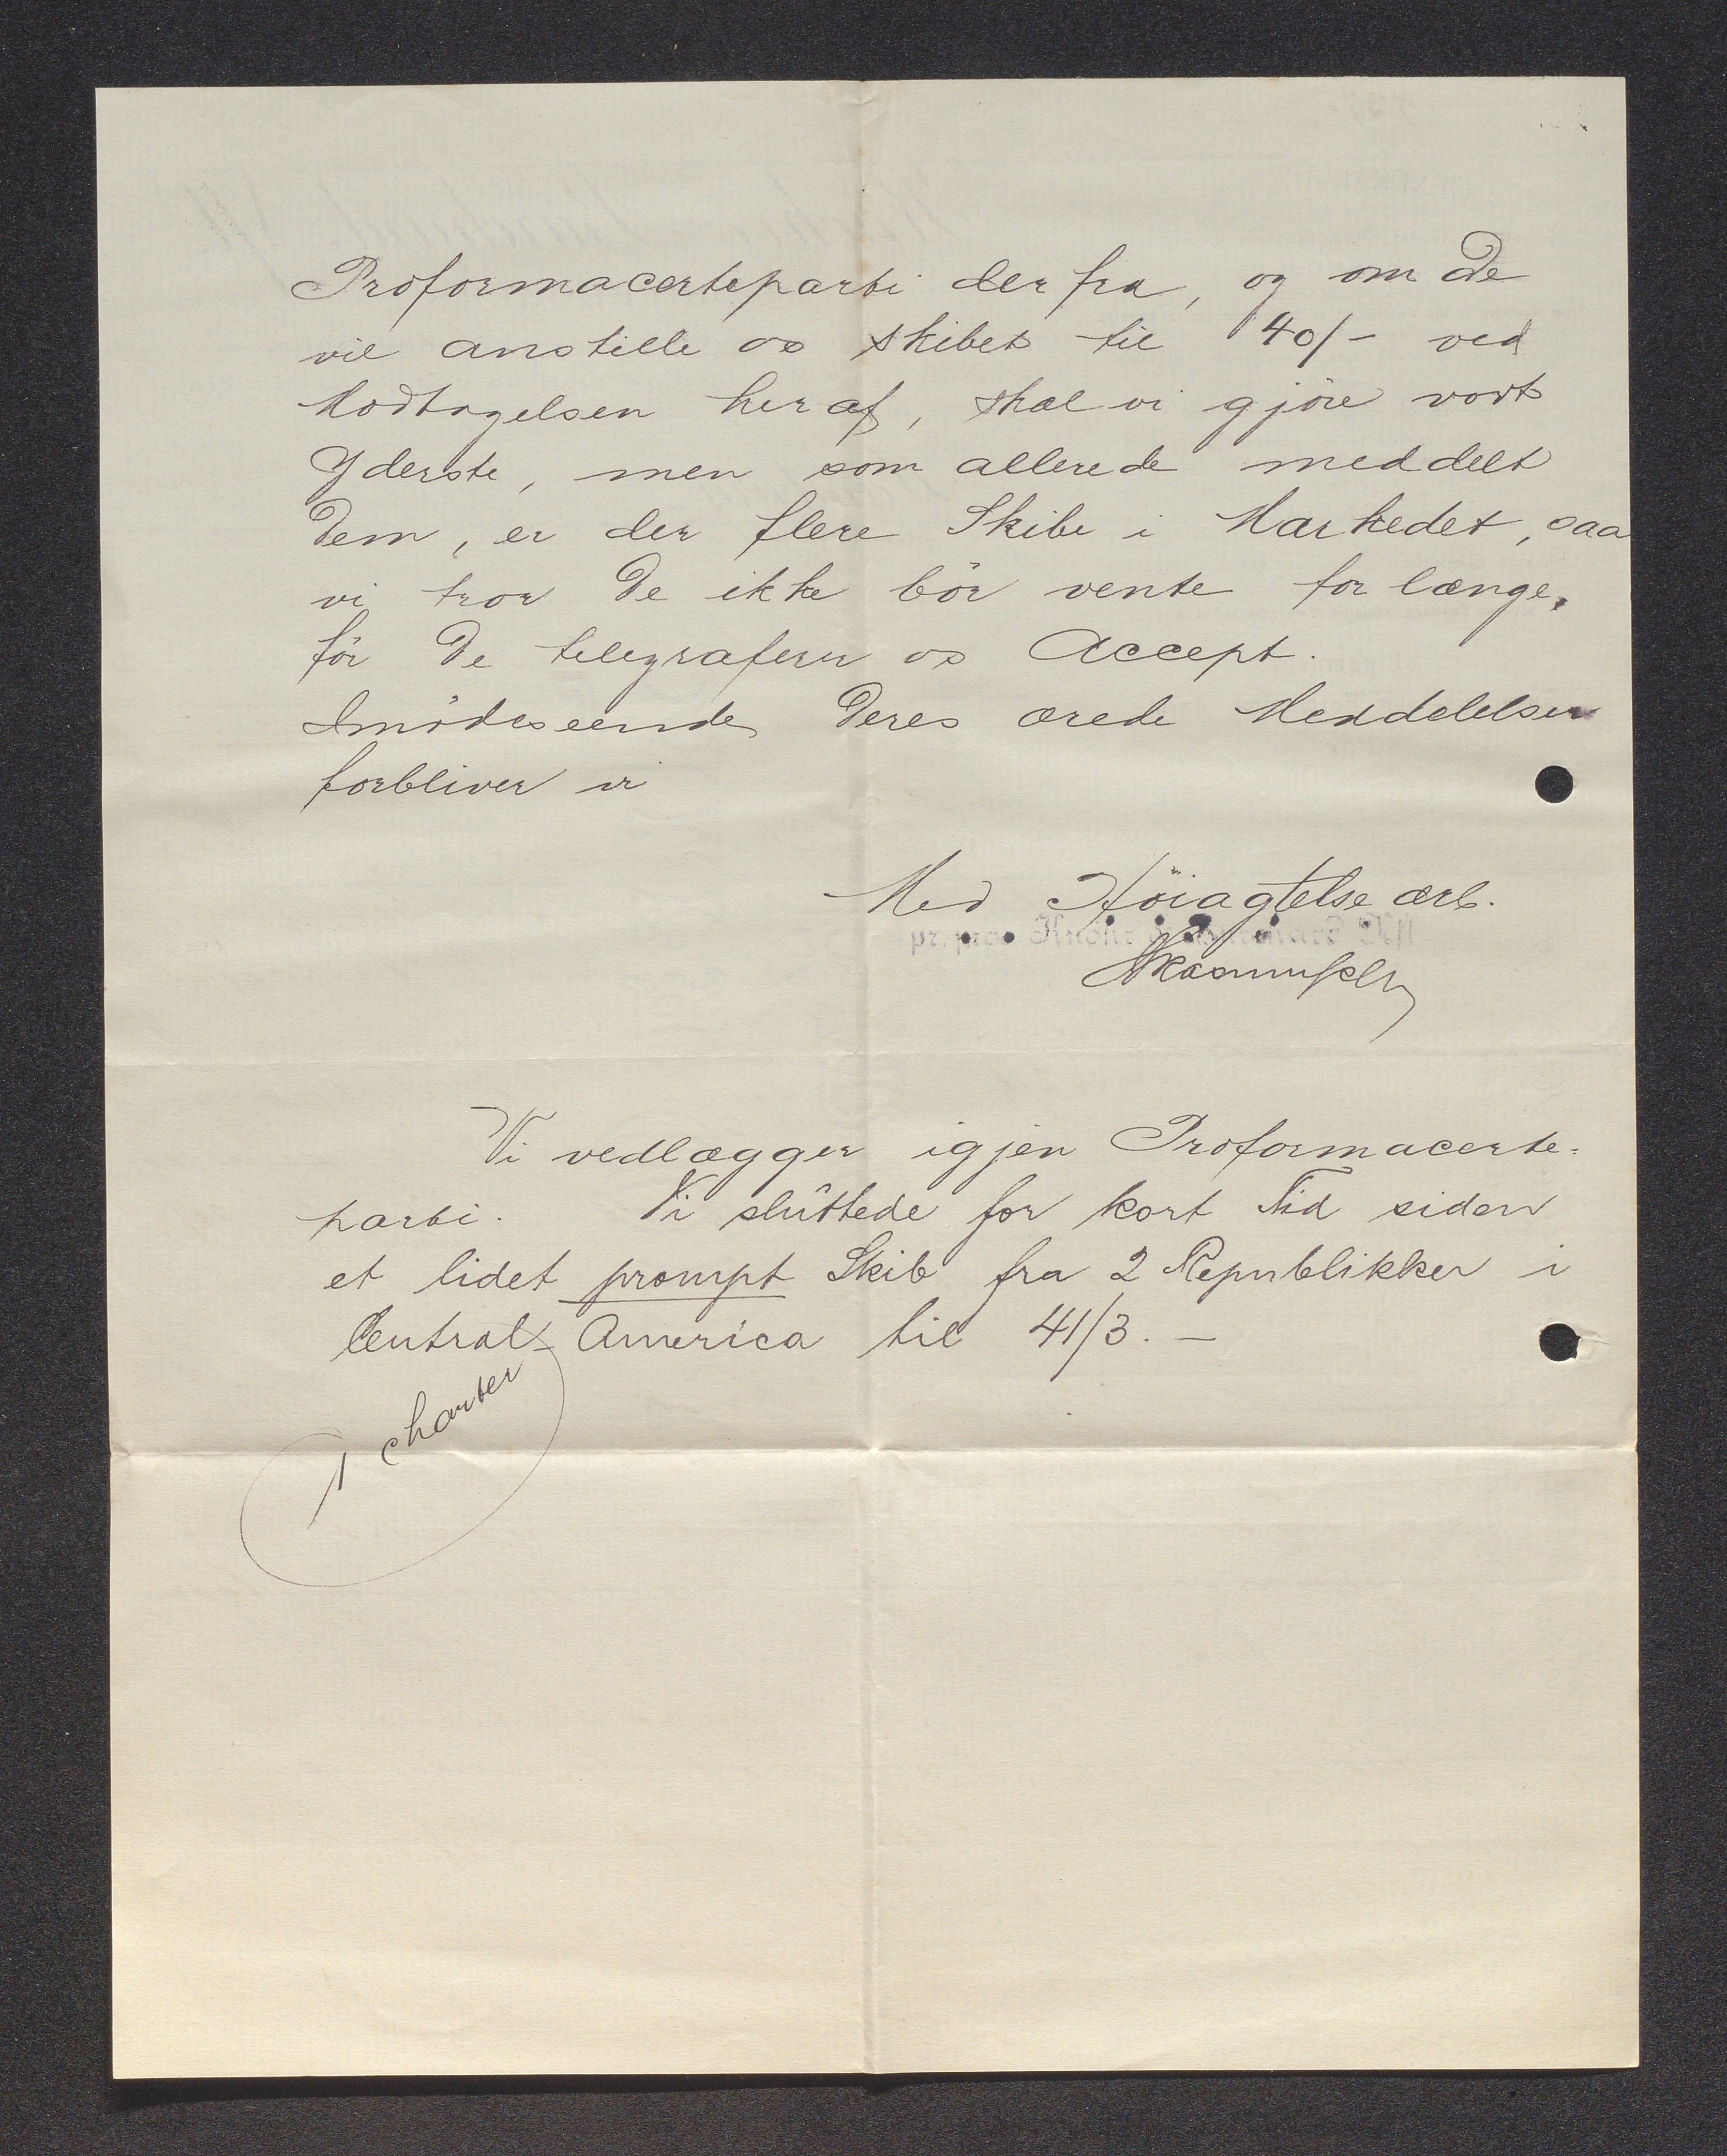 Proformacerteparti derfra, og om De
vil anstille os Skibet til 40/- ved
Modtagelsen heraf, skal vi gjöre vort
Yderste, men som allerede meddelt
Dem, er der flere Skibe i Markedet, saa
vi tror De ikke bör vente for længe,
för De telegraferer os Accept.
Imödeseende Deres ærede Meddelelser
forbliver vi
Med Höiagtelse ærb.
pr. pra.
Vi vedlægger igjen Proformacerte=
parti. Vi slŭttede for kort Tid siden
et lidet prompt Skib fra 2 Republikker i
Central-America til 41/3.-
1 charter